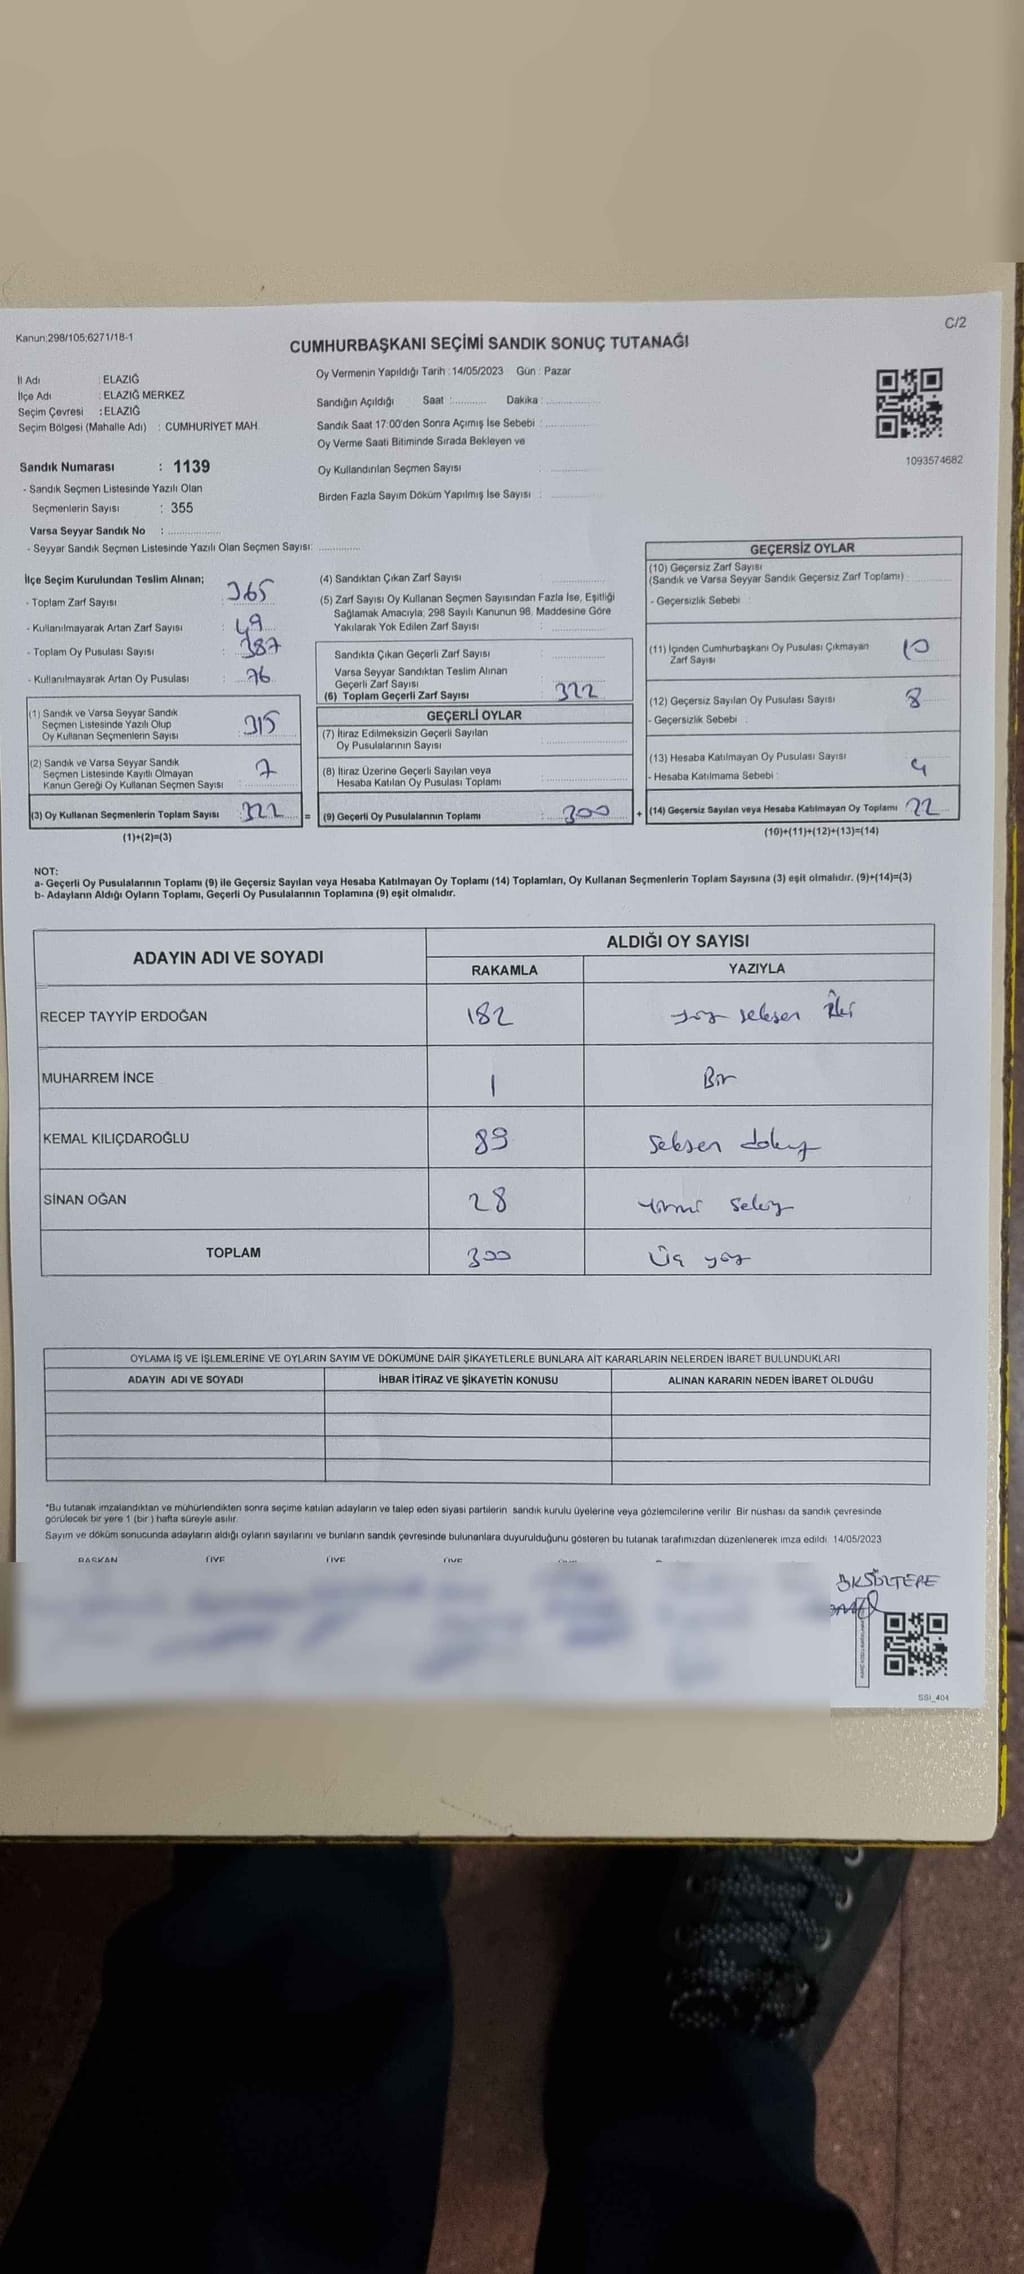 Kanun:298/105;6271/18-1
C/2
CUMHURBAŞKANI SEÇİMİ SANDIK SONUÇ TUTANAĞI
İl Adı : ELAZIĞ
İlçe Adı : ELAZIĞ MERKEZ
Seçim Çevresi : ELAZIĞ
Seçim Bölgesi (Mahalle Adı) : CUMHURİYET MAH.
Sandık Numarası : 1139
- Sandık Seçmen Listesinde Yazılı Olan
Seçmenlerin Sayısı : 355
Varsa Seyyar Sandık No : ..............
- Seyyar Sandık Seçmen Listesinde Yazılı Olan Seçmen Sayısı: ..............
Oy Vermenin Yapıldığı Tarih : 14/05/2023 Gün : Pazar
Sandığın Açıldığı Saat : .......... Dakika : ..............
Sandık Saat 17:00'den Sonra Açımış İse Sebebi : ..............
Oy Verme Saati Bitiminde Sırada Bekleyen ve
Oy Kullandırılan Seçmen Sayısı : ..............
Birden Fazla Sayım Döküm Yapılmış İse Sayısı : ..............
1093574682
İlçe Seçim Kurulundan Teslim Alınan;
- Toplam Zarf Sayısı : 365
- Kullanılmayarak Artan Zarf Sayısı : 49
- Toplam Oy Pusulası Sayısı : 387
- Kullanılmayarak Artan Oy Pusulası : 76
(1) Sandık ve Varsa Seyyar Sandık
Seçmen Listesinde Yazılı Olup
Oy Kullanan Seçmenlerin Sayısı : 315
(2) Sandık ve Varsa Seyyar Sandık
Seçmen Listesinde Kayıtlı Olmayan
Kanun Gereği Oy Kullanan Seçmen Sayısı : 7
(3) Oy Kullanan Seçmenlerin Toplam Sayısı : 322 =
(1)+(2)=(3)
(4) Sandıktan Çıkan Zarf Sayısı : ..............
(5) Zarf Sayısı Oy Kullanan Seçmen Sayısından Fazla İse, Eşitliği
Sağlamak Amacıyla; 298 Sayılı Kanunun 98. Maddesine Göre
Yakılarak Yok Edilen Zarf Sayısı : ..............
Sandıkta Çıkan Geçerli Zarf Sayısı : ..............
Varsa Seyyar Sandıktan Teslim Alınan
Geçerli Zarf Sayısı : ..............
(6) Toplam Geçerli Zarf Sayısı : 322
GEÇERLİ OYLAR
(7) İtiraz Edilmeksizin Geçerli Sayılan
Oy Pusulalarının Sayısı : ..............
(8) İtiraz Üzerine Geçerli Sayılan veya
Hesaba Katılan Oy Pusulası Toplamı : ..............
(9) Geçerli Oy Pusulalarının Toplamı : 300 +
GEÇERSİZ OYLAR
(10) Geçersiz Zarf Sayısı
(Sandık ve Varsa Seyyar Sandık Geçersiz Zarf Toplamı) : ..........
- Geçersizlik Sebebi :
(11) İçinden Cumhurbaşkanı Oy Pusulası Çıkmayan
Zarf Sayısı 10
(12) Geçersiz Sayılan Oy Pusulası Sayısı 8
- Geçersizlik Sebebi :
(13) Hesaba Katılmayan Oy Pusulası Sayısı 4
- Hesaba Katılmama Sebebi :
(14) Geçersiz Sayılan veya Hesaba Katılmayan Oy Toplamı 22
(10)+(11)+(12)+(13)=(14)
NOT:
a- Geçerli Oy Pusulalarının Toplamı (9) ile Geçersiz Sayılan veya Hesaba Katılmayan Oy Toplamı (14) Toplamları, Oy Kullanan Seçmenlerin Toplam Sayısına (3) eşit olmalıdır. (9)+(14)=(3)
b- Adayların Aldığı Oyların Toplamı, Geçerli Oy Pusulalarının Toplamına (9) eşit olmalıdır.
ADAYIN ADI VE SOYADI ALDIĞI OY SAYISI
RAKAMLA YAZIYLA
RECEP TAYYİP ERDOĞAN 182 yüz seksen iki
MUHARREM İNCE 1 Bir
KEMAL KILIÇDAROĞLU 89 seksen dokuz
SİNAN OĞAN 28 yirmi sekiz
TOPLAM 300 Üç yüz
OYLAMA İŞ VE İŞLEMLERİNE VE OYLARIN SAYIM VE DÖKÜMÜNE DAİR ŞİKAYETLERLE BUNLARA AİT KARARLARIN NELERDEN İBARET BULUNDUKLARI
ADAYIN ADI VE SOYADI İHBAR İTİRAZ VE ŞİKAYETİN KONUSU ALINAN KARARIN NEDEN İBARET OLDUĞU
*Bu tutanak imzalandıktan ve mühürlendikten sonra seçime katılan adayların ve talep eden siyasi partilerin sandık kurulu üyelerine veya gözlemcilerine verilir. Bir nüshası da sandık çevresinde
görülecek bir yere 1 (bir ) hafta süreyle asılır.
Sayım ve döküm sonucunda adayların aldığı oyların sayılarını ve bunların sandık çevresinde bulunanlara duyurulduğunu gösteren bu tutanak tarafımızdan düzenlenerek imza edildi. 14/05/2023
BAŞKAN ÜYE ÜYE ÜYE
ÖKSÜZTEPE
SSI_404